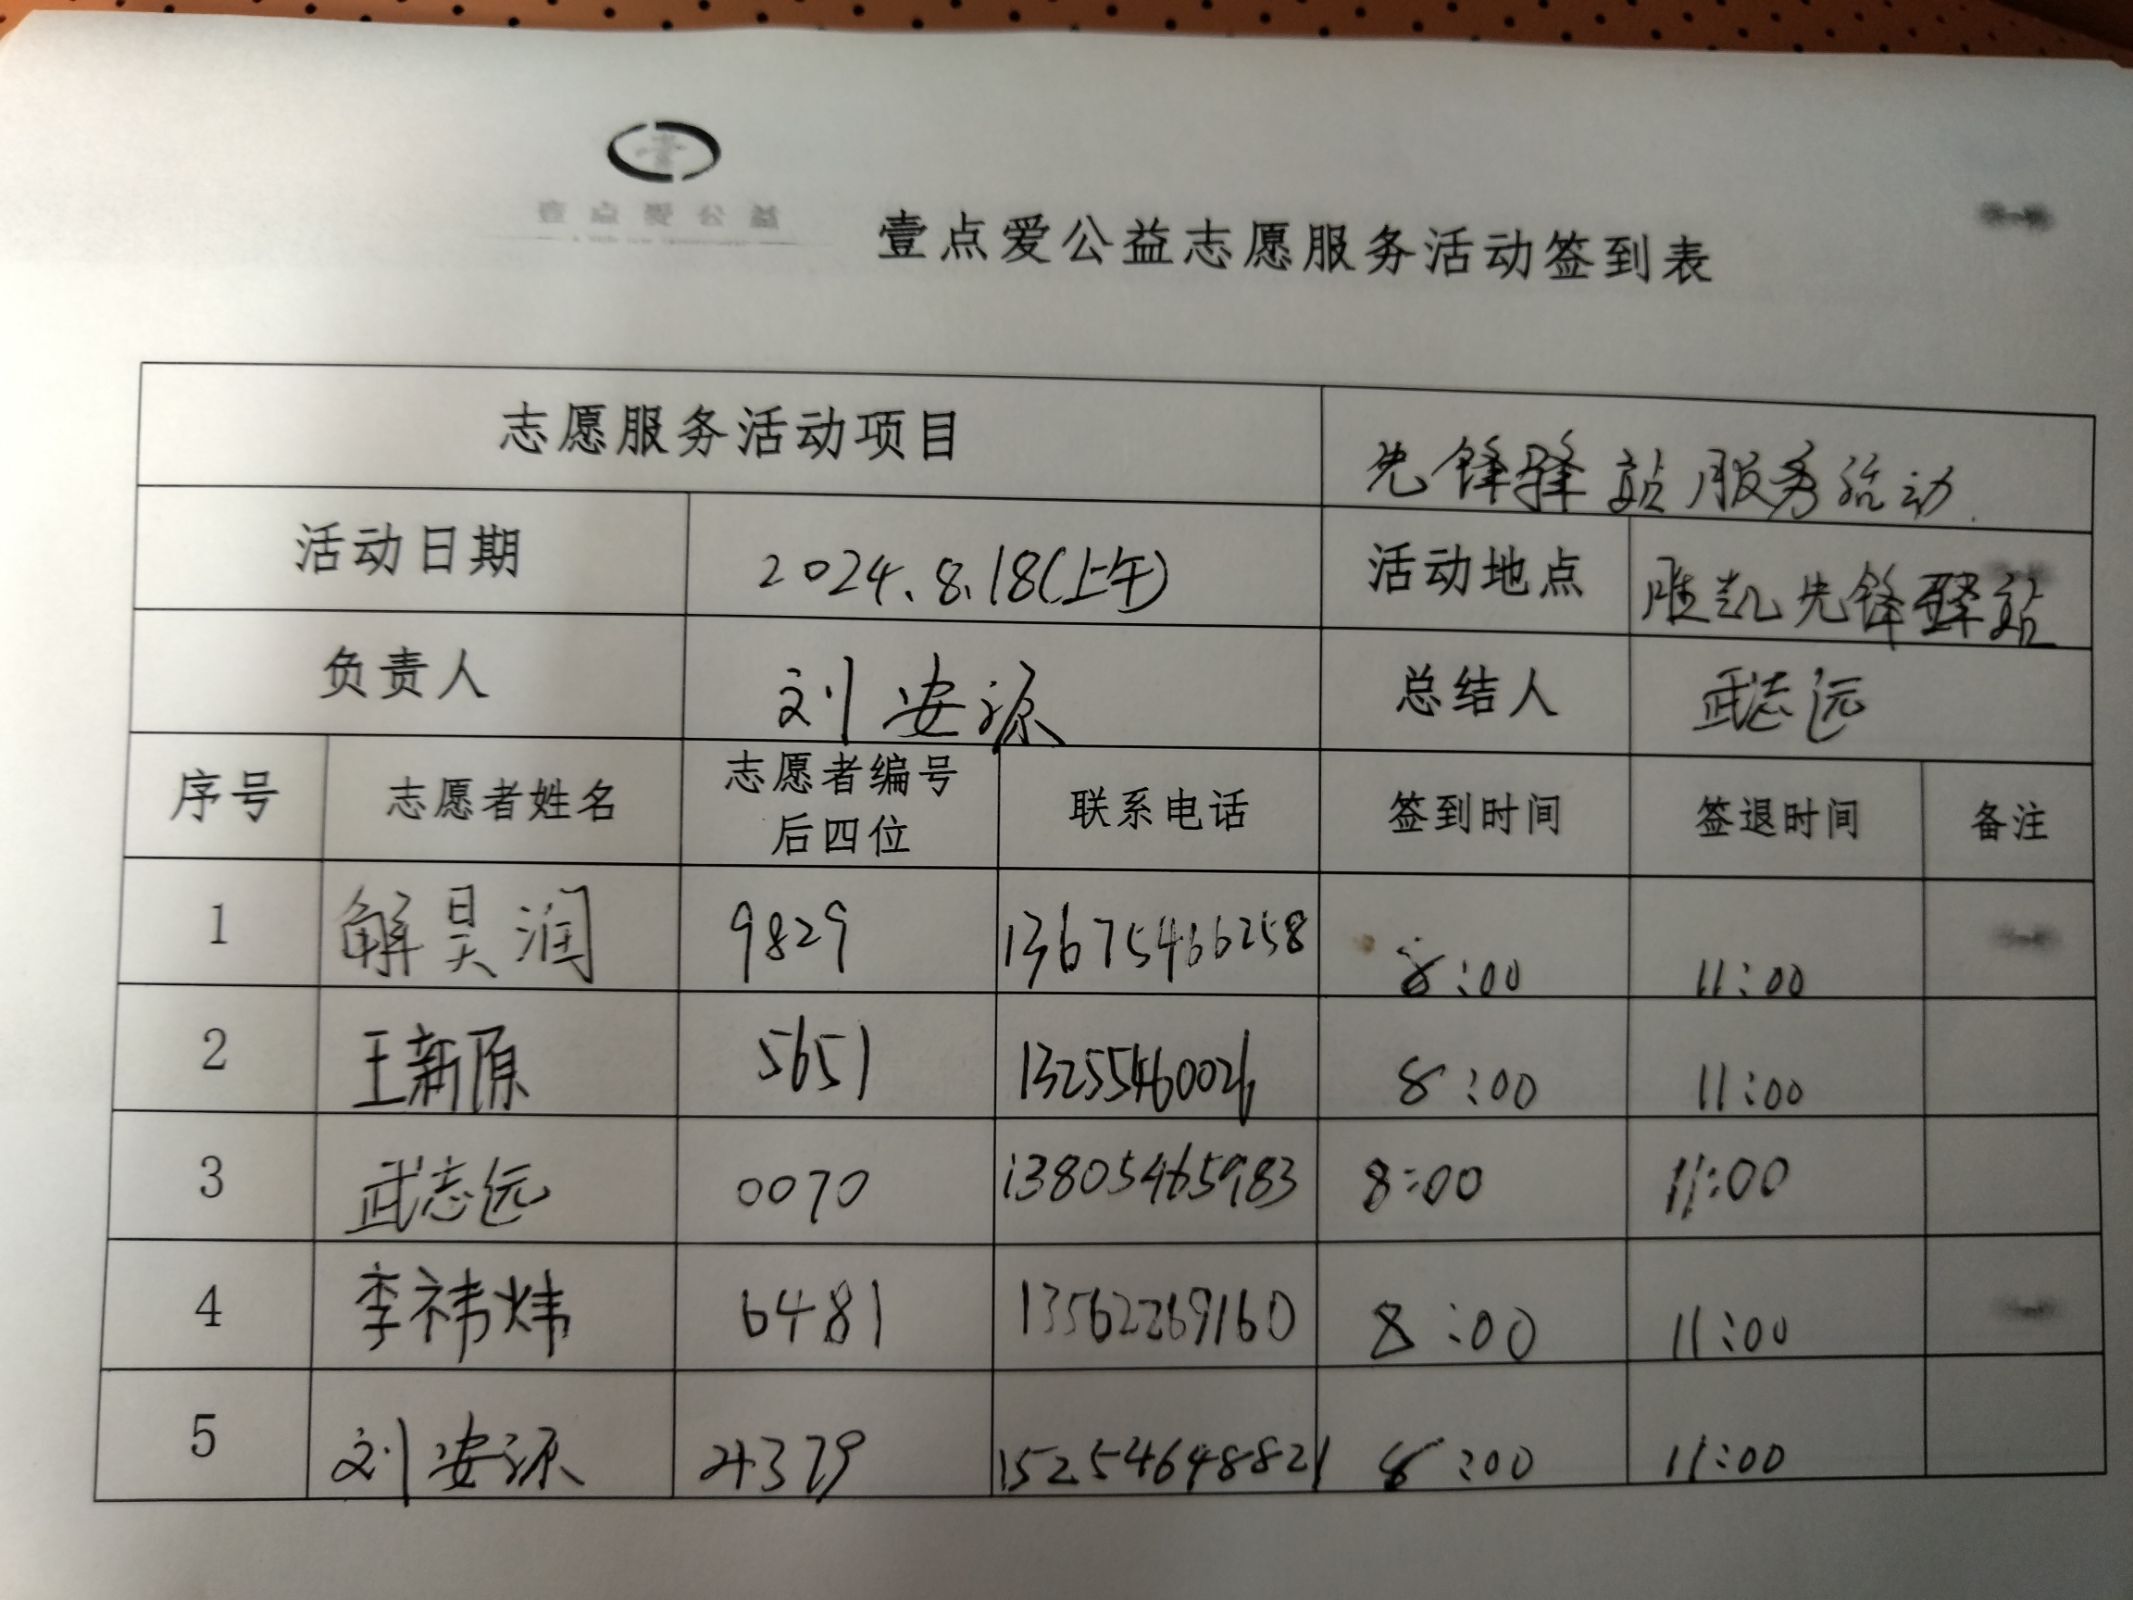 壹点爱公益
壹点爱公益志愿服务活动签到表
志愿服务活动项目 先锋驿站服务活动
活动日期 2024.8.18(上午) 活动地点 胜凯先锋驿站
负责人 刘安源 总结人 武志远
序号 志愿者姓名 志愿者编号后四位 联系电话 签到时间 签退时间 备注
1 解昊润 9829 13675466258 8:00 11:00
2 王新原 5651 13255460026 8:00 11:00
3 武志远 0070 13805465983 8:00 11:00
4 李祎炜 6481 13562269160 8:00 11:00
5 刘安源 4379 15254648821 8:00 11:00